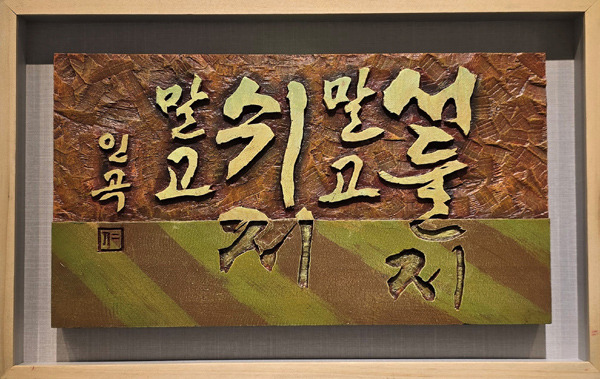 서둘지
말고
쉬지
말고
인곡